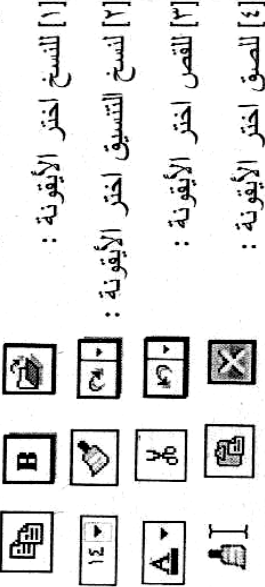 [١] للنسخ اختر الأيقونة :
B
[٢] لنسخ التنسيق اختر الأيقونة :
١٤
[٣] للقص اختر الأيقونة :
A
[٤] للصق اختر الأيقونة :